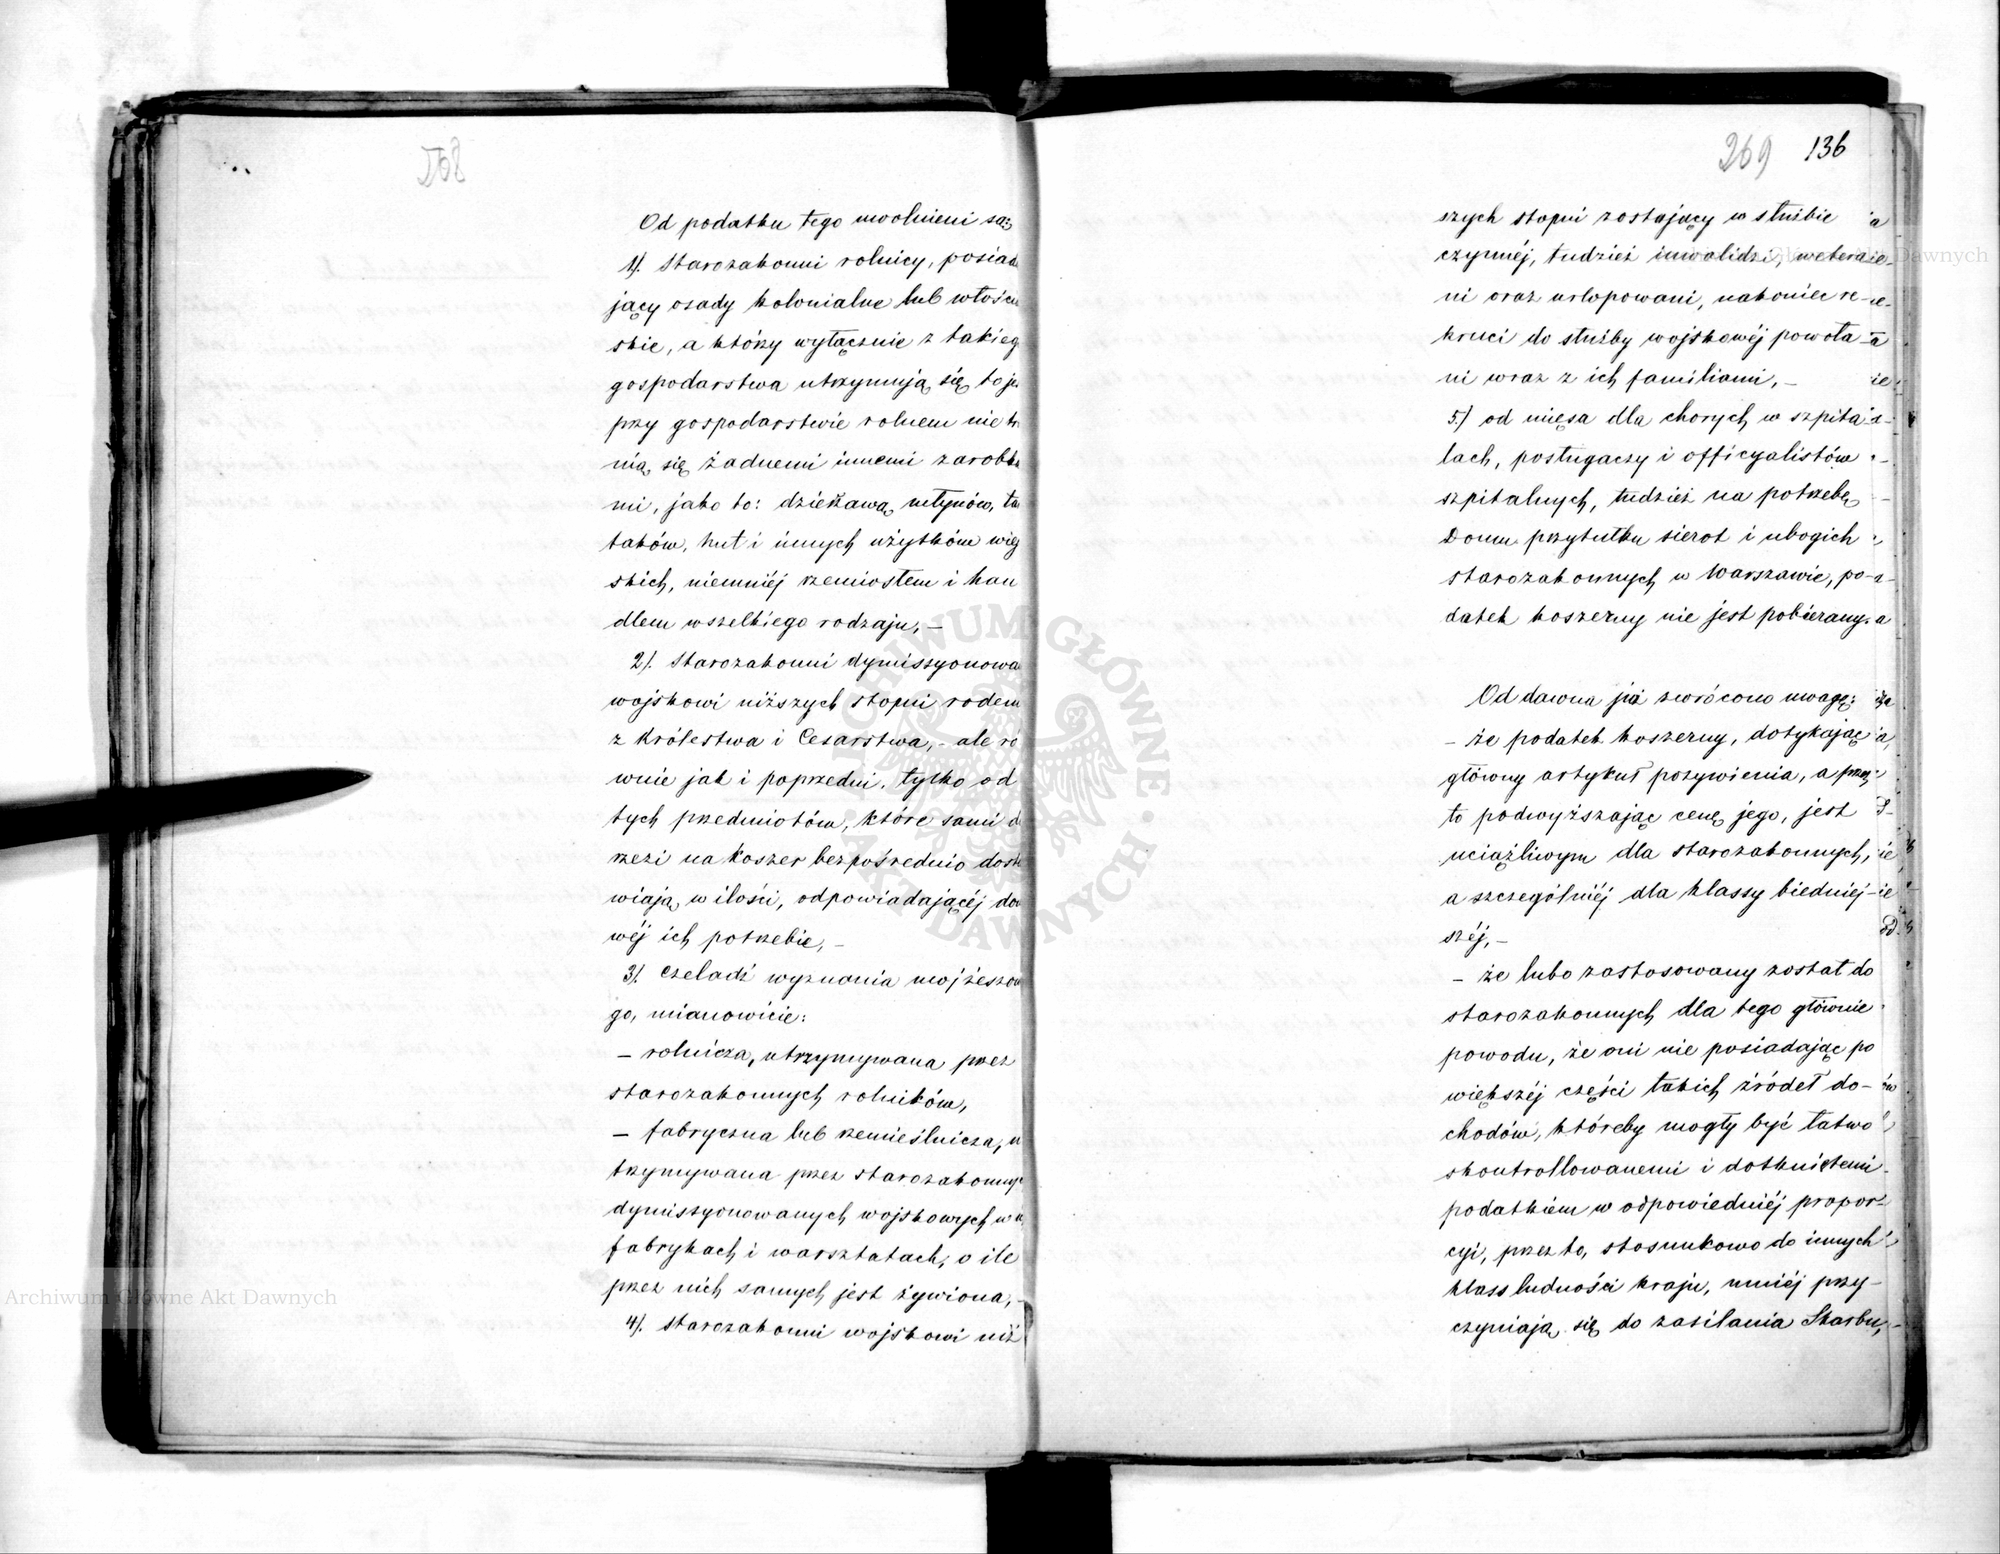 268
Od podatku tego uwolnieni są:
1). Starozakonni rolnicy, posiada
jący osady kolonialne lub włościa
skie, a którzy wyłącznie z takieg
gospodarstwa utrzymują się, to jes
przy gospodarstwie rolnem nie tr
nią się żadnemi innemi zarobka
mi, jako to: dzierżawą młynów, ta
taków, hut i innych użytków wiej
skich, niemniéj rzemiosłem i han
dlem wszelkiego rodzaju,—
2). Starozakonni dymissyonowa
wojskowi niższych stopni rodem
z Królestwa i Cesarstwa,— ale ró
wnie jak i poprzedni, tylko od
tych przedmiotów, które sami d
rzezi na koszer bezpośrednio dosta
wiają, w ilości, odpowiadającéj do
wéj ich potrzebie,—
3). Czeladź wyznania mojżeszow
go, mianowicie:
— rolnicza, utrzymywana przez
starozakonnych rolników,
— fabryczna lub rzemieślnicza, u
trzymywana przez starozakonnyc
dymissyonowanych wojskowych w
fabrykach i warsztatach, o ile
przez nich samych jest żywiona,—
4). Starozakonni wojskowi niż
269 136
szych stopni zostający w służbie
czynnéj, tudzież inwalidzi, wetera
ni oraz urlopowani, nakoniec re-
kruci do służby wojskowéj powoła
ni wraz z ich familiami,—
5.) od mięsa dla chorych w szpita
lach, posługaczy i officyalistów
szpitalnych, tudzież na potrzebę
Domu przytułku sierot i ubogich
starozakonnych w Warszawie, po-
datek koszerny nie jest pobierany.
Od dawna już zwrócono uwagę:
— że podatek koszerny, dotykając
główny artykuł pożywienia, a przez
to podwyższając cenę jego, jest
uciążliwym dla starozakonnych,
a szczególniéj dla klassy biedniej-
széj,—
— że lubo zastosowany został do
starozakonnych dla tego głównie
powodu, że oni nie posiadając po
większéj części takich źródeł do-
chodów, któreby mogły być łatwo
skontrollowanemi i dotkniętemi
podatkiem w odpowiedniéj propor-
cyi, przez to, stosunkowo do innych
klass ludności kraju, mniéj przy-
czyniają się do zasilania Skarbu,—
ARCHIWUM GŁÓWNE AKT DAWNYCH
Archiwum Główne Akt Dawnych
Archiwum Główne Akt Dawnych